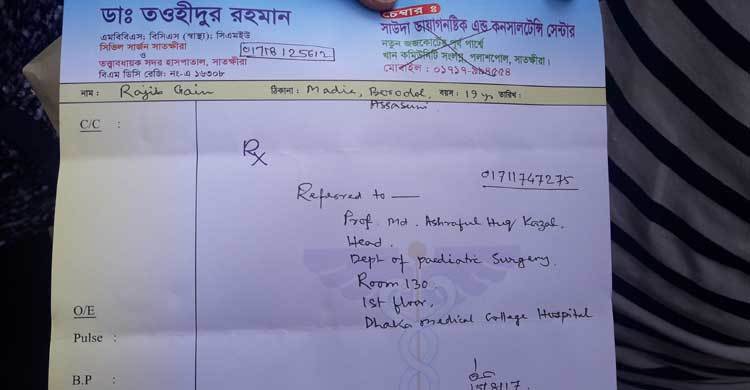 ডাঃ তওহীদুর রহমান
এমবিবিএস; বিসিএস (স্বাস্থ্য); সিএমইউ
সিভিল সার্জন সাতক্ষীরা
ও
01718125612
তত্ত্বাবধায়ক সদর হাসপাতাল, সাতক্ষীরা
বিএম ডিসি রেজি: নং-এ ১৬৩০৮
চেম্বার ঃ
সাউদা ডায়াগনষ্টিক এন্ড কনসালটেন্সি সেন্টার
নতুন জজকোর্টের পূর্ব পার্শ্বে
খান কমিউনিটি সংলগ্ন, পলাশপোল, সাতক্ষীরা।
মোবাইল :
নাম: Rajib Gain ঠিকানা: Madia, Borodol, Assasuni বয়স: 19 yrs তারিখ:
C/C :
Rx
01711747275
Referred to —
Prof. Md. Ashraful Huq Kazal.
Head.
Dept of paediatric Surgery.
Room 130
1st floor,
Dhaka medical College Hospital
O/E
Pulse :
B.P :